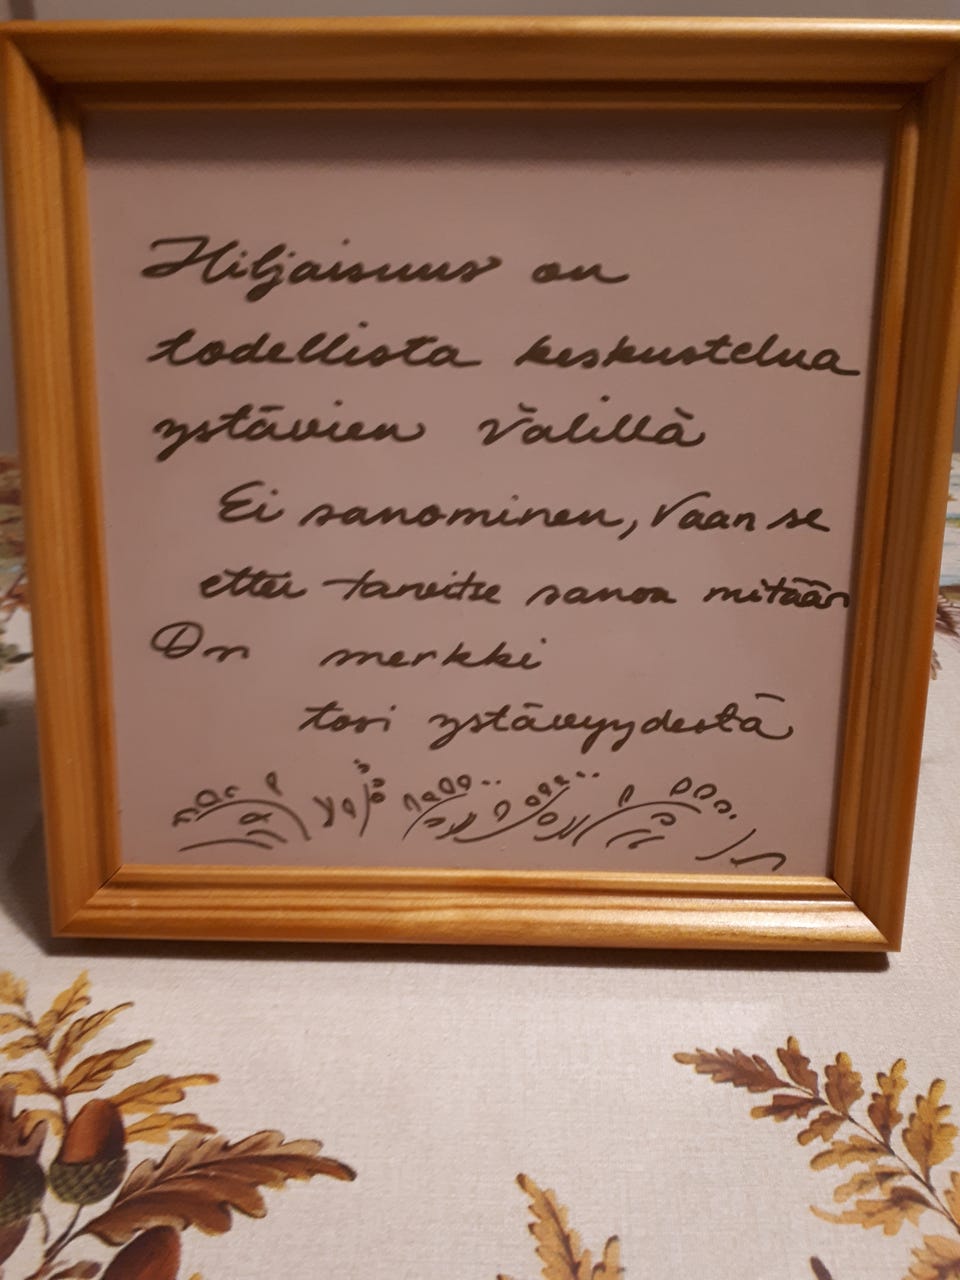 Hiljaisuus on
todellista keskustelua
ystävien välillä
Ei sanominen, vaan se
ettei tarvitse sanoa mitään
On merkki
tosi ystävyydestä